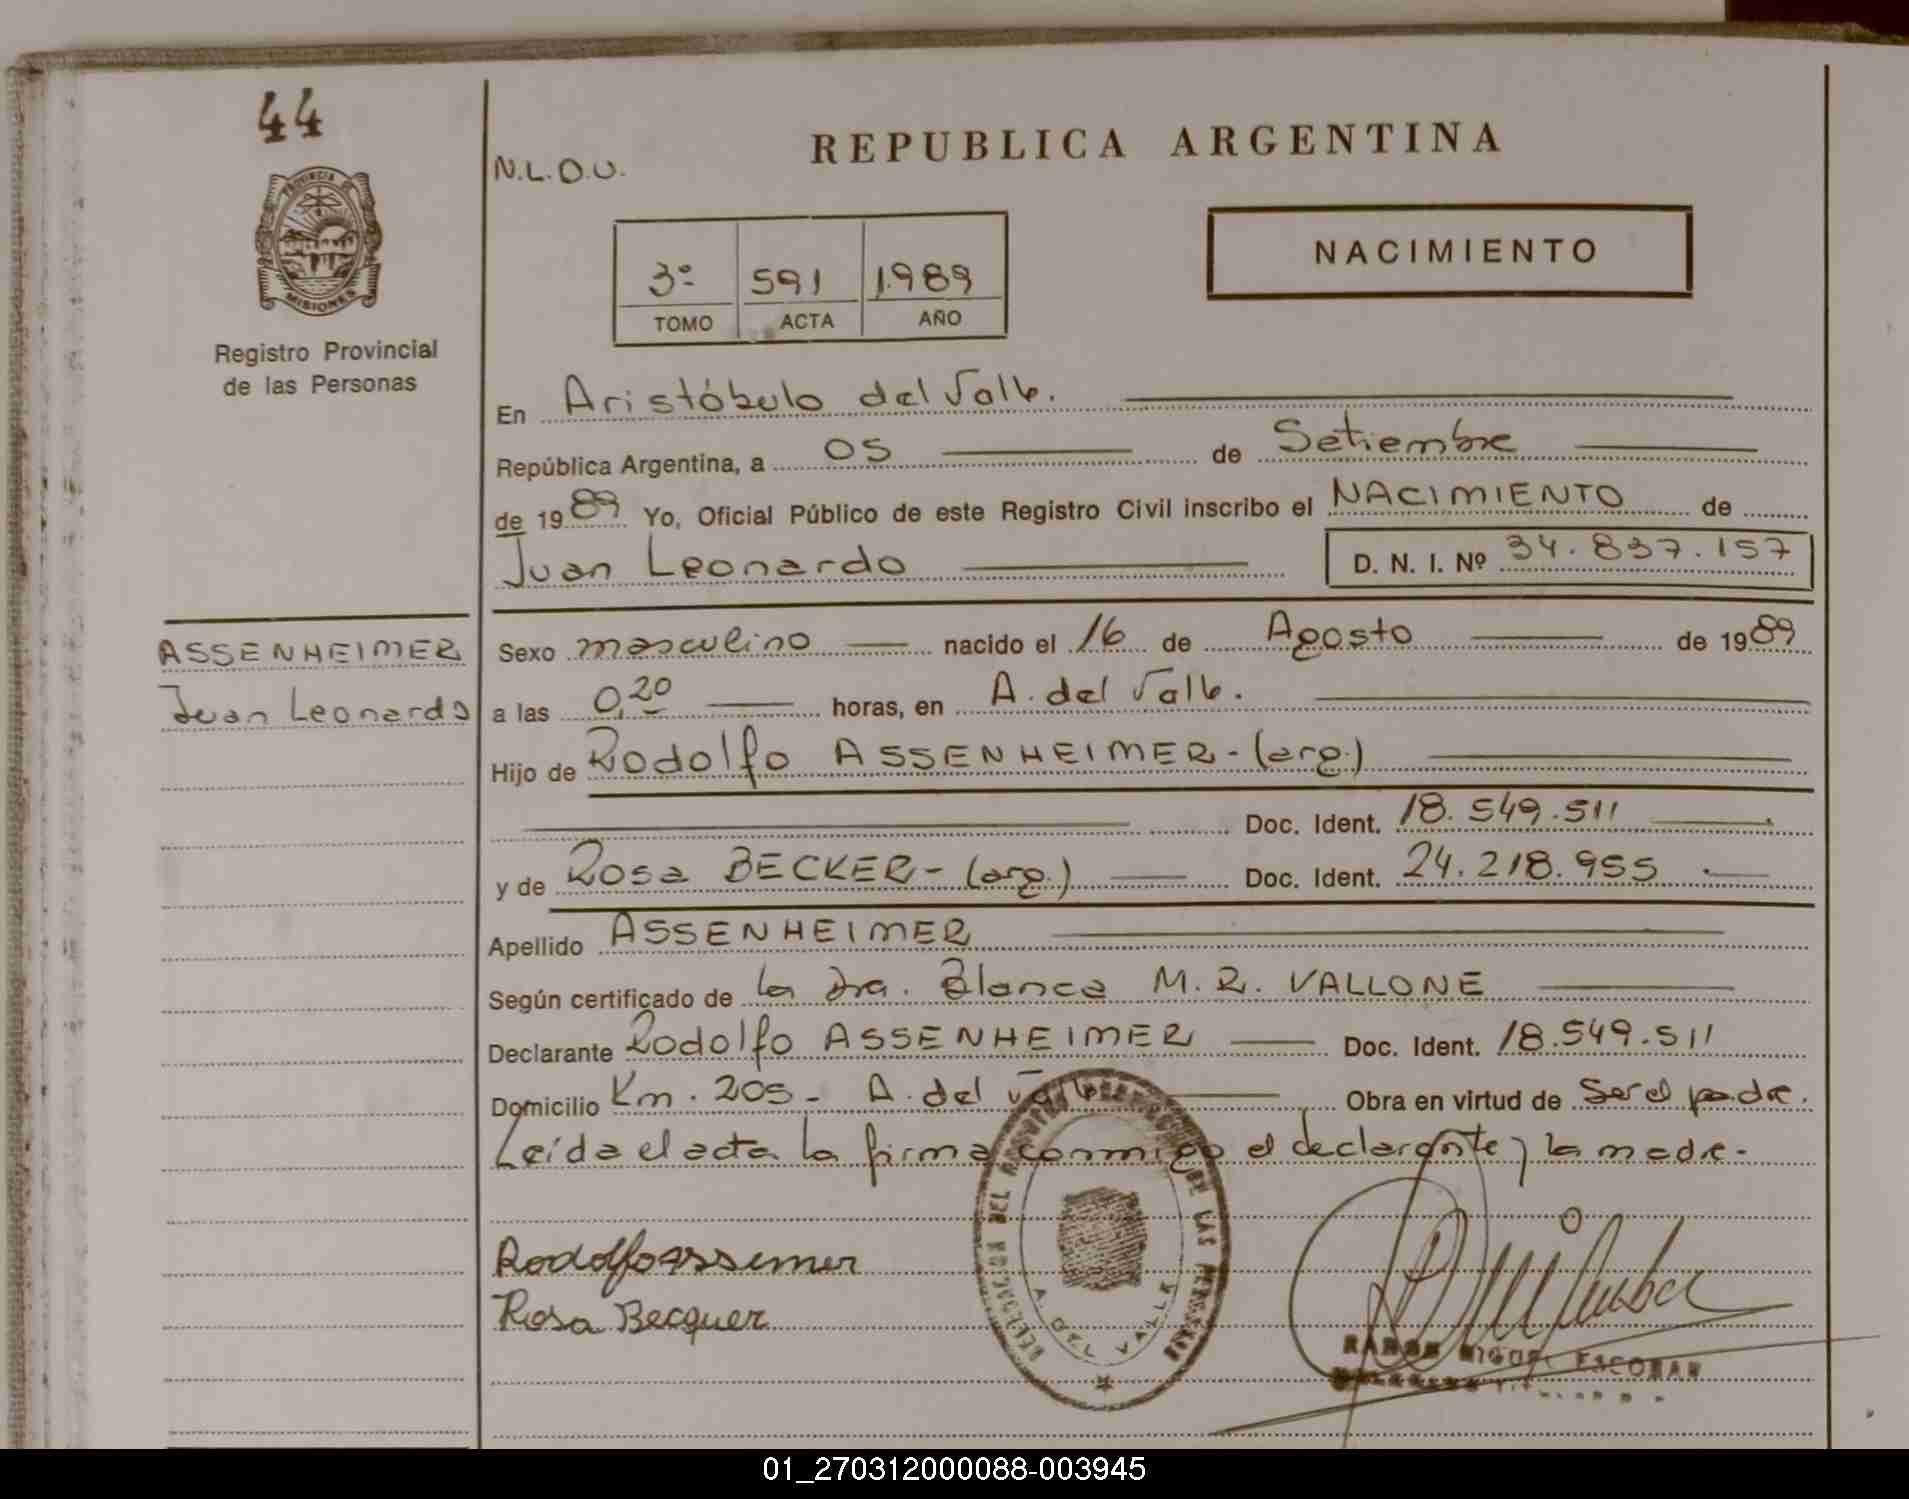 44
PROVINCIA DE
MISIONES
Registro Provincial
de las Personas
N.L.O.U.
REPUBLICA ARGENTINA
3º 591 1.989
TOMO ACTA AÑO
NACIMIENTO
En Aristóbulo del Valle.
República Argentina, a 05 de Setiembre
de 1989 Yo, Oficial Público de este Registro Civil inscribo el NACIMIENTO de
Juan Leonardo D. N. I. Nº 34.837.157
ASSENHEIMER
Juan Leonardo
Sexo masculino nacido el 16 de Agosto de 1989
a las 0,20 horas, en A. del Valle.
Hijo de Rodolfo ASSENHEIMER - (arg.)
Doc. Ident. 18.549.511
y de Rosa BECKER - (arg.) Doc. Ident. 24.218.955
Apellido ASSENHEIMER
Según certificado de la Dra. Blanca M. R. VALLONE
Declarante Rodolfo ASSENHEIMER Doc. Ident. 18.549.511
Domicilio Km. 205 - A. del Valle Obra en virtud de Ser el padre.
Leída el acta la firma conmigo el declarante y la madre.-
Rodolfo assemer
Rosa Becquer
DEL REGISTRO DE LAS PERSONAS
A. DEL VALLE
RAMON MIGUEL ESCOBAR
01_270312000088-003945